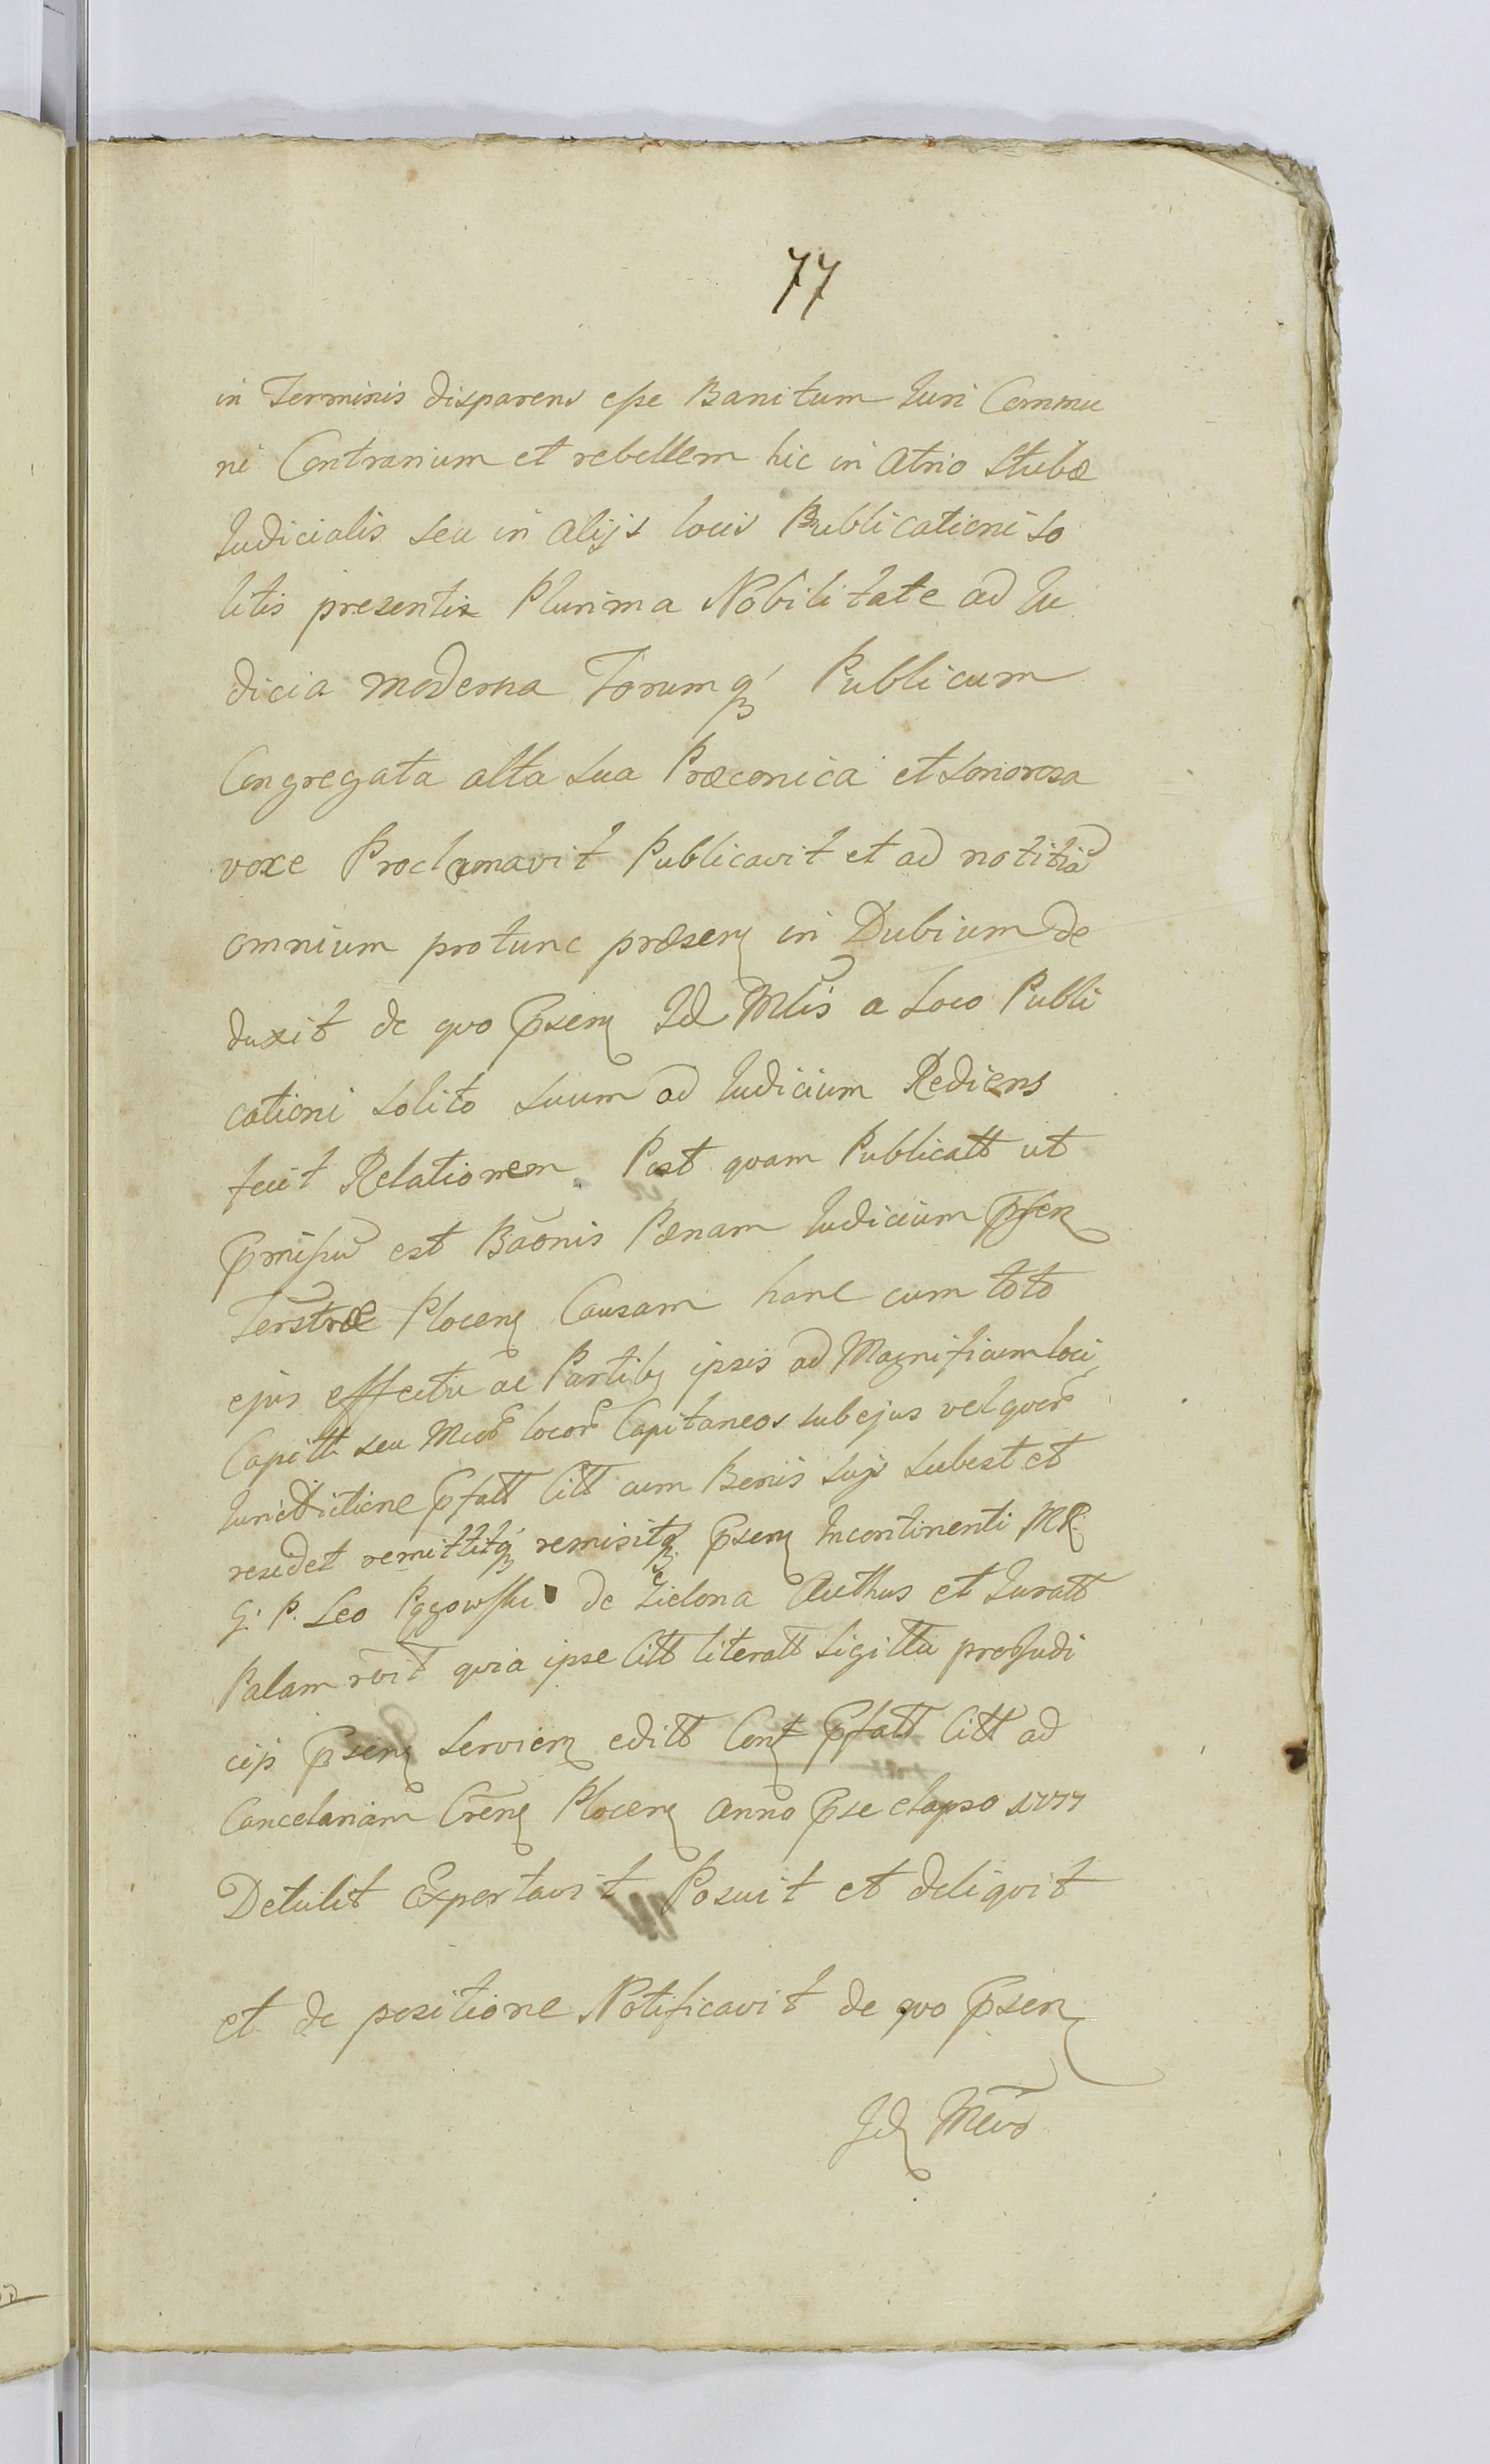 77
in Terminis disparens esse Banitum Iuri Commu
ni Contrarium et rebellem hic in Atrio Stubæ
Iudicialis seu in alijs locis Publicationi so
litis presentis Plurima Nobilitate ad Iu
dicia moderna Forumq Publicum
Congregata alta sua Præconica et sonorosa
voxe Proclamavit Publicavit et ad notitiã
omnium protunc præsen in Dubium de
duxit de quo Pñsen Id Mlis a Loco Publi
cationi solito suum ad Iudicium Rediens
fecit Relationem. Post quam Publicatt ut
Pmissũ est Baõnis Pænam Iudicium Pñsen
Terstræ Plocen Causam hanc cum toto
ejus effectu ac Partibq ipsis ad Magnificum loci
Capitt seu Mcor locor Capitaneos sub ejus vel quor
Iurisdictione Pfatt Citt cum Benis suis subest et
residet remittitq remisitq Pñsen Incontinenti MR
G. P. Leo Pgowski de Zielona Authus et Iuratt
Palam rõit quia ipse Citt literatt Sigitta pro Iudi
cijs Pñsen Servien editt Cont Pfatt Citt ad
Cancelariam Crẽn Plocen anno Pñse elapso 1777
Detulit Exportavit Posuit et deliqvit
et de positione Notificavit de quo Pñsen
Id Mcus